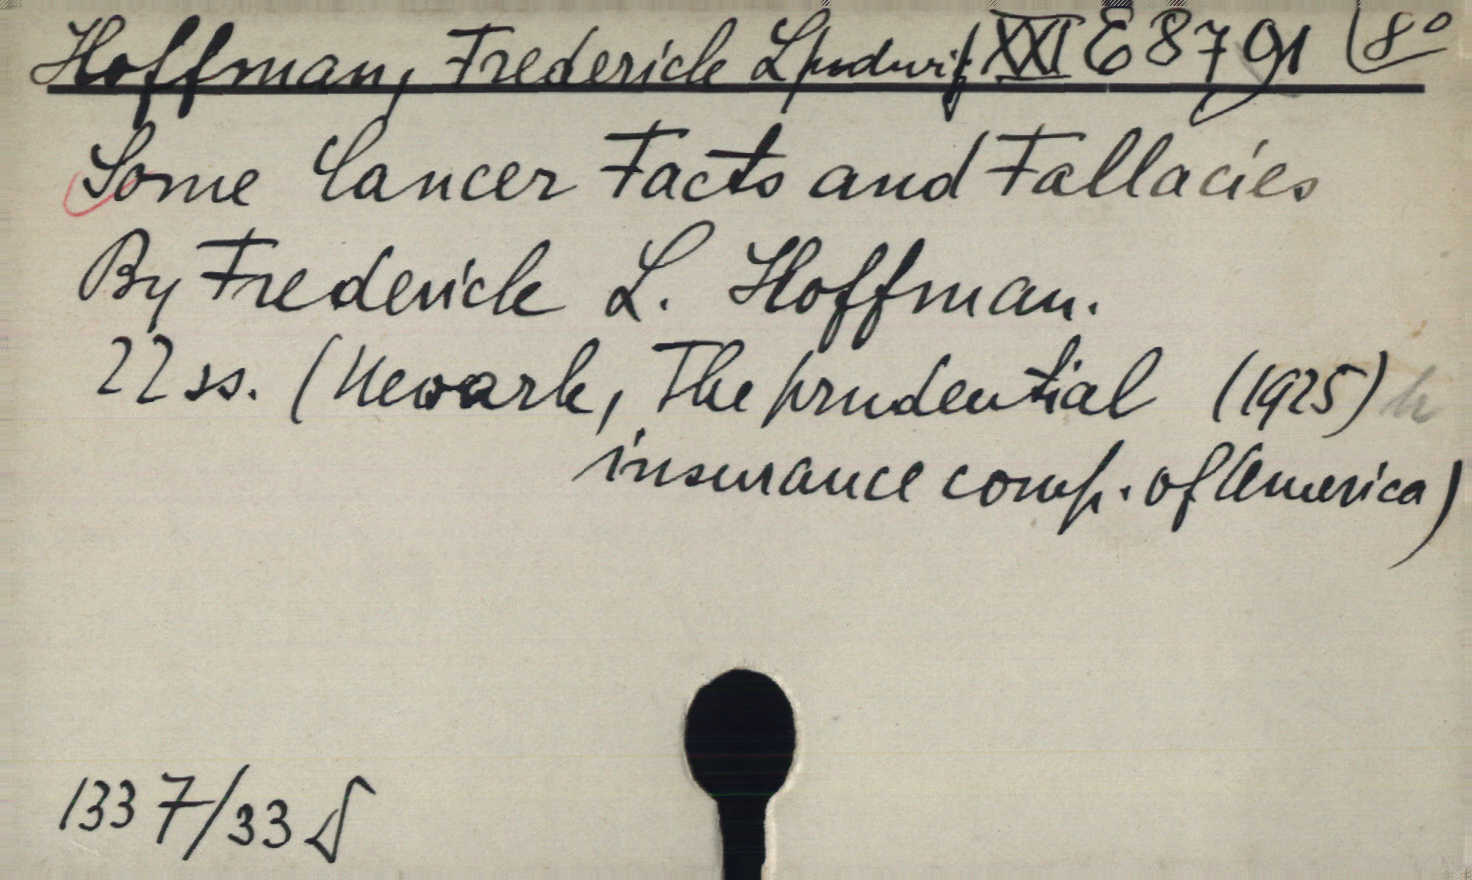 Hoffman, Frederick L/udwig XXI E 8791 8°
Some Cancer Facts and Fallacies
By Frederick L. Hoffman.
22 ss. (Newark, The prudential (1925)
insurance comp. of America)
1337/33